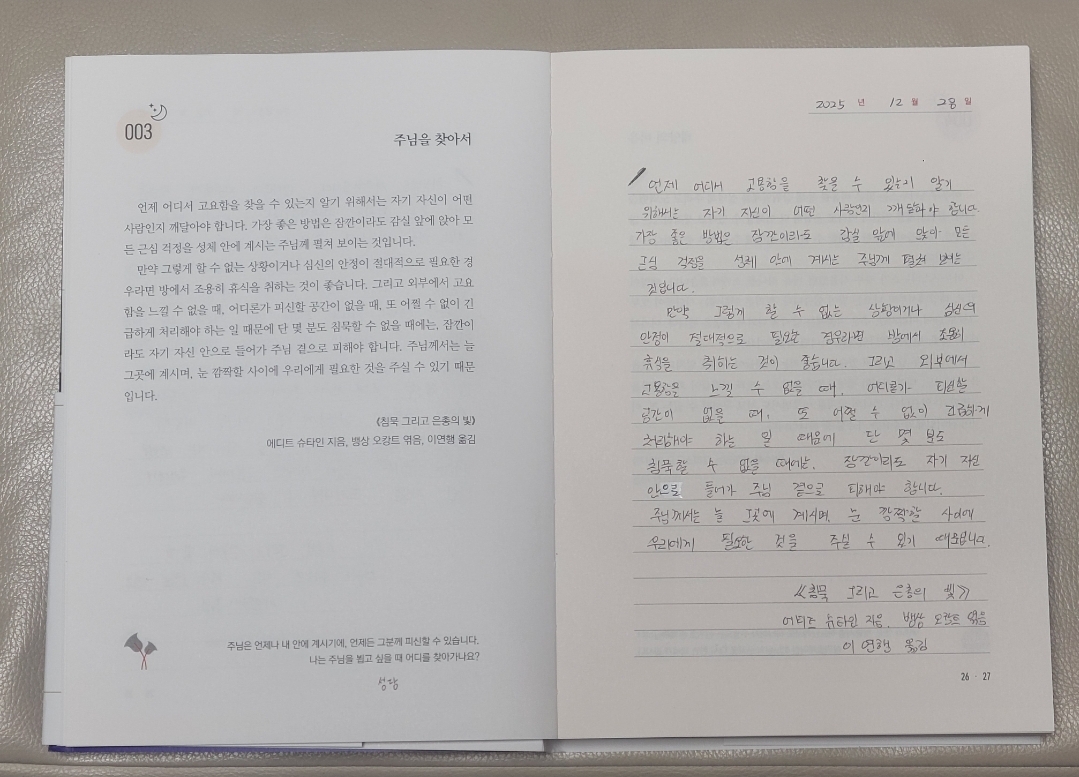 003
주님을 찾아서
언제 어디서 고요함을 찾을 수 있는지 알기 위해서는 자기 자신이 어떤
사람인지 깨달아야 합니다. 가장 좋은 방법은 잠깐이라도 감실 앞에 앉아 모
든 근심 걱정을 성체 안에 계시는 주님께 펼쳐 보이는 것입니다.
만약 그렇게 할 수 없는 상황이거나 심신의 안정이 절대적으로 필요한 경
우라면 방에서 조용히 휴식을 취하는 것이 좋습니다. 그리고 외부에서 고요
함을 느낄 수 없을 때, 어디론가 피신할 공간이 없을 때, 또 어쩔 수 없이 긴
급하게 처리해야 하는 일 때문에 단 몇 분도 침묵할 수 없을 때에는, 잠깐이
라도 자기 자신 안으로 들어가 주님 곁으로 피해야 합니다. 주님께서는 늘
그곳에 계시며, 눈 깜짝할 사이에 우리에게 필요한 것을 주실 수 있기 때문
입니다.
《침묵 그리고 은총의 빛》
에디트 슈타인 지음, 뱅상 오캉트 엮음, 이연행 옮김
주님은 언제나 내 안에 계시기에, 언제든 그분께 피신할 수 있습니다.
나는 주님을 뵙고 싶을 때 어디를 찾아가나요?
성당
2025 년 12 월 28 일
언제 어디서 고용함을 찾을 수 있는지 알기
위해서는 자기 자신이 어떤 사람인지 깨달아야 합니다.
가장 좋은 방법은 잠깐이라도 감실 앞에 앉아 모든
근심 걱정을 성체 안에 계시는 주님께 펼쳐 보이는
것입니다.
만약 그렇게 할 수 없는 상황이거나 심신의
안정이 절대적으로 필요한 경우라면 방에서 조용히
휴식을 취하는 것이 좋습니다. 그리고 외부에서
고용함을 느낄 수 없을 때, 어디론가 피신할
공간이 없을 때, 또 어쩔 수 없이 긴급하게
처리해야 하는 일 때문에 단 몇 분도
침묵할 수 없을 때에는, 잠깐이라도 자기 자신
안으로 들어가 주님 곁으로 피해야 합니다.
주님께서는 늘 그곳에 계시며, 눈 깜짝할 사이에
우리에게 필요한 것을 주실 수 있기 때문입니다.
《침묵 그리고 은총의 빛》
에디트 슈타인 지음, 뱅상 오캉트 엮음
이연행 옮김
26 · 27